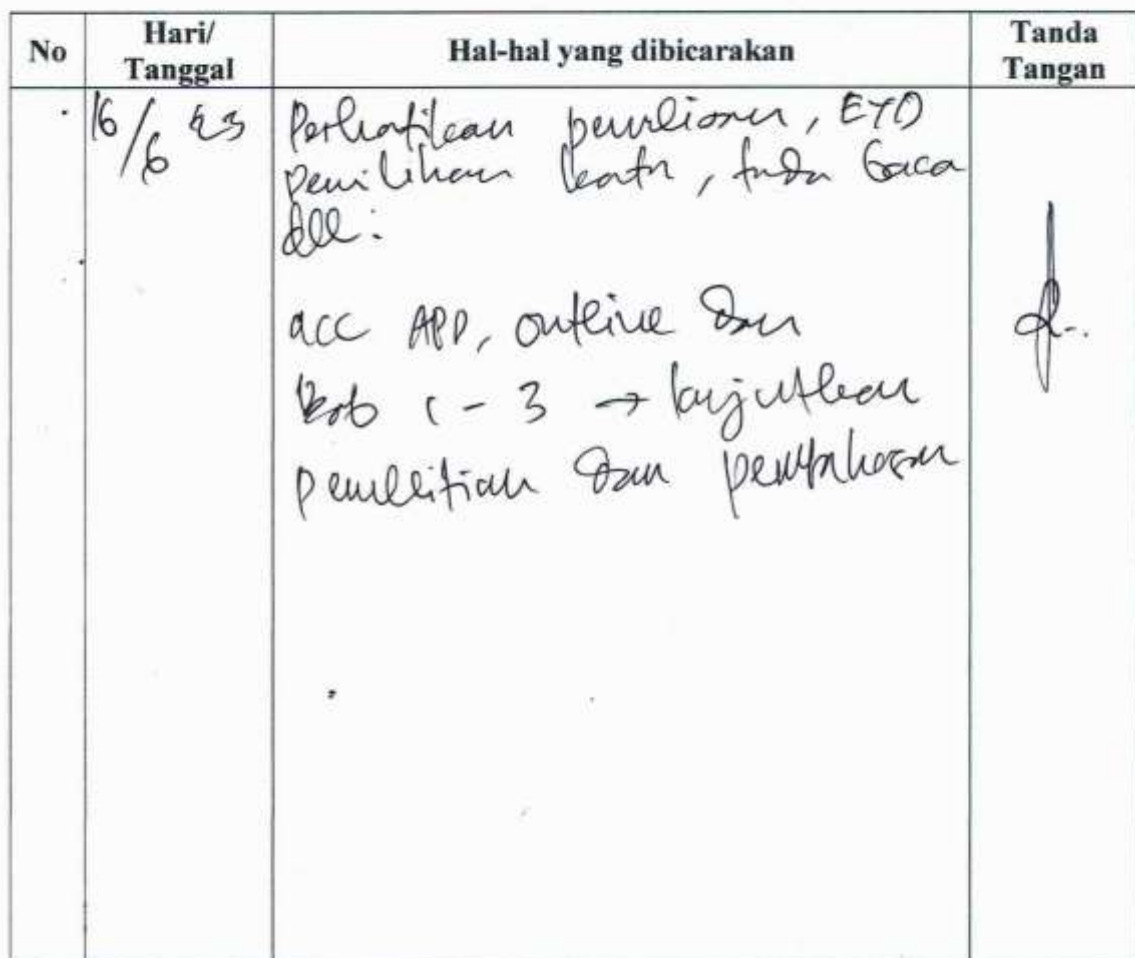 No
Hari/
Tanggal
Hal-hal yang dibicarakan
Tanda
Tangan
16/6 23
Perhatikan penulisan, EYD
pemilihan kata, tanda baca
dll.
acc APD, outline dan
bab 1-3 → lanjutkan
penelitian dan pembahasan